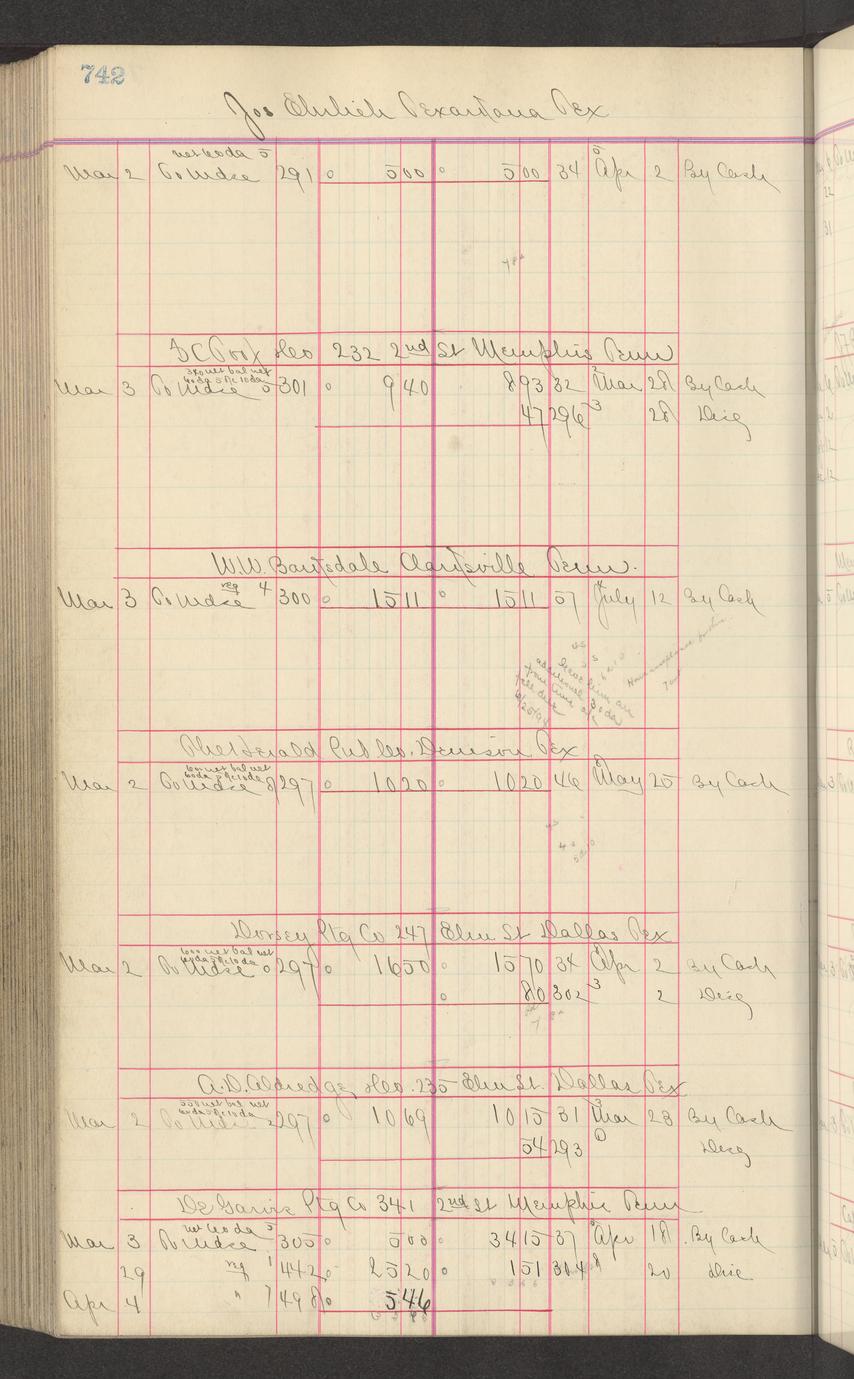 742
Jos Ehrlich Texarkana Tex
net 60 da 5
Mar 2 To Mdse 291 500 500 34 Apr 2 By Cash
232 2nd St Memphis Tenn
Mar 3 To Mdse 5 301 940 893 32 Mar 28 By Cash
47 296 3 28 Disc
W.W. Barksdale Clarksville Tenn.
reg 4
Mar 3 To Mdse 300 1511 1511 57 July 12 By Cash
The Herald Pub Co. Denison Tex
600 net bal net
60 da 5% 10 da
Mar 2 To Mdse 8 297 1020 1020 46 May 25 By Cash
Dorsey Ptg Co 247 Elm St Dallas Tex
600 net bal net
60 da 5% 10 da
Mar 2 To Mdse 297 1650 1570 34 Apr 2 By Cash
80 302 3 2 Disc
A.D. Aldredge 235 Elm St. Dallas Tex
550 net bal net
60 da 5% 10 da
Mar 2 To Mdse 2 297 1069 1015 31 Mar 23 By Cash
54 293 Disc
Ptg Co 341 2nd St Memphis Tenn
net 60 da 5
Mar 3 To Mdse 305 500 3415 37 Apr 18 By Cash
29 reg 1 442 2520 151 304 20 Disc
Apr 4 " 7 498 546